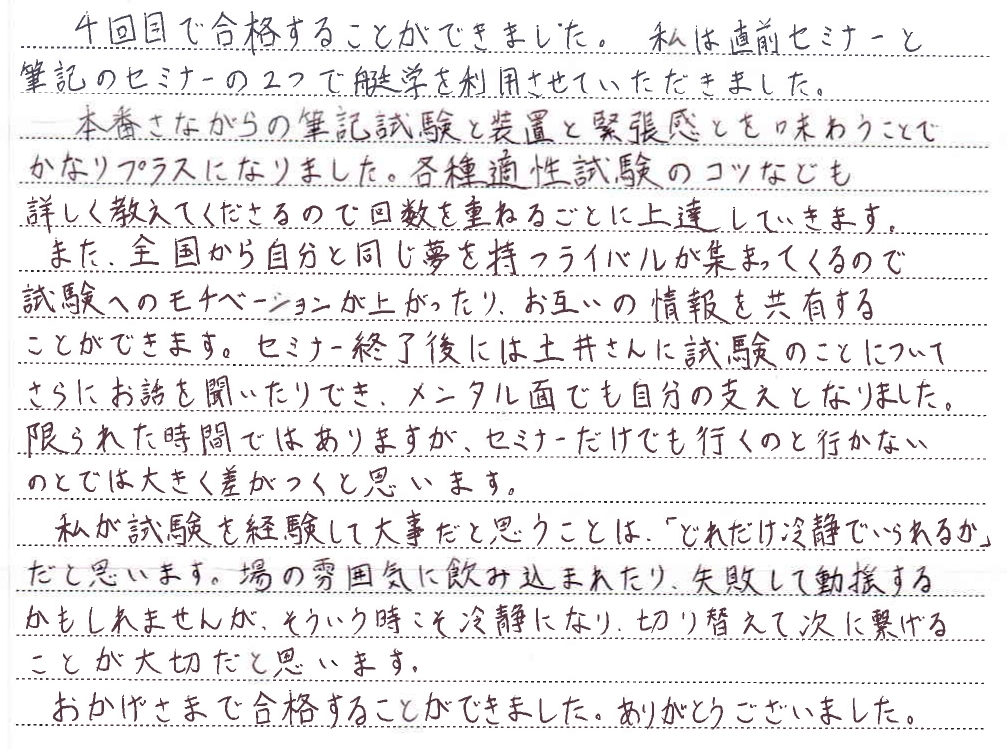 4回目で合格することができました。 私は直前セミナーと
筆記のセミナーの2つで艇学を利用させていただきました。
本番さながらの筆記試験と装置と緊張感とを味わうことで
かなりプラスになりました。各種適性試験のコツなども
詳しく教えてくださるので回数を重ねるごとに上達していきます。
また、全国から自分と同じ夢を持つライバルが集まってくるので
試験へのモチベーションが上がったり、お互いの情報を共有する
ことができます。セミナー終了後には土井さんに試験のことについて
さらにお話を聞いたりでき、メンタル面でも自分の支えとなりました。
限られた時間ではありますが、セミナーだけでも行くのと行かない
のとでは大きく差がつくと思います。
私が試験を経験して大事だと思うことは、「どれだけ冷静でいられるか」
だと思います。場の雰囲気に飲み込まれたり、失敗して動揺する
かもしれませんが、そういう時こそ冷静になり、切り替えて次に繋げる
ことが大切だと思います。
おかげさまで合格することができました。ありがとうございました。